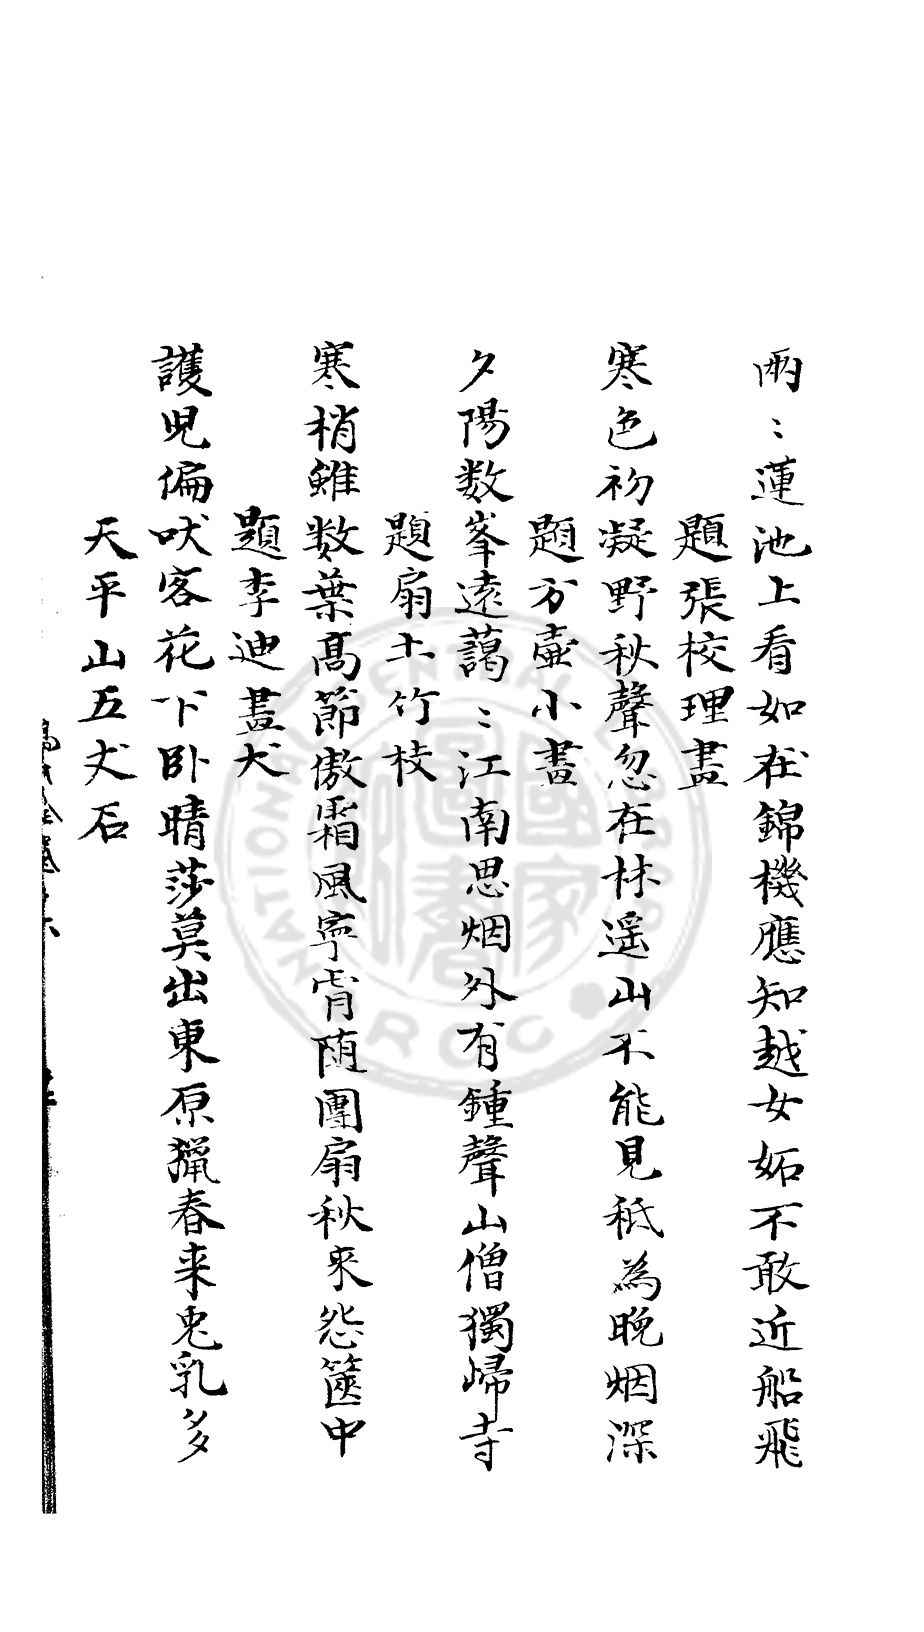 兩〻蓮池上看如在錦機應知越女妬不敢近船飛
題張校理畫
寒色初凝野秋聲忽在林遥山不能見秪為晚烟深
題方壺小畫
夕陽数峯遠藹〻江南思烟外有鍾聲山僧獨歸寺
題扇上竹枝
寒梢雖数葉髙節傲霜風寧肯随團扇秋来怨篋中
題李迪畫犬
護児偏吠客花下卧晴莎莫出東原獵春来兎乳多
天平山五丈石
NATIONAL CENTRAL LIBRARY R.O.C.
國家圖書